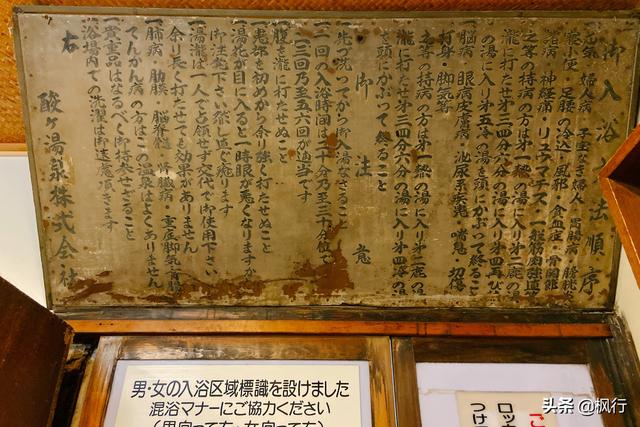 御入浴法順序
元気 婦人病 子宝なき婦人 胃腸病
之等の持病の方は第一熱の湯に入り第二鹿の
瀧に打たせ第三四分六分の湯に入り第四再び
の湯に入り第五冷の湯を頭にかぶって終ること
脳病 眼病皮膚病 泌尿系疾患 喘息 切傷
打身 脚気等
之等の持病の方は第一熱の湯に入り第二鹿の
瀧に打たせ第三四分六分の湯に入り第四冷の
を頭にかぶって終ること
御注意
一先づ洗ってから御入湯なさること
一一回の入浴時間は二十分乃至三十分位で
一日三回乃至五六回が適当です
一腹を瀧に打たせぬこと
一患部を初めから余り強く打たせぬこと
一湯花が目に入ると一時眼が悪くなりますが
御注意下さい然し直ぐ癒ります
一湯瀧は一人で占領せず交代で御使用下さい
余り長く打たせても効果がありません
一肺病・肋膜・脳脊髄 腎臓病 重症脚気 胃潰
てんかん病の方はこの温泉はよくありません
一貴重品はなるべく御持参せざること
一浴場内での洗濯は御遠慮頂きます
右
酸ヶ湯泉株式会社
男・女の入浴区域標識を設けました
混浴マナーにご協力ください
(男向って左・女向って右)
ロッ
つけ
头条 @枫行